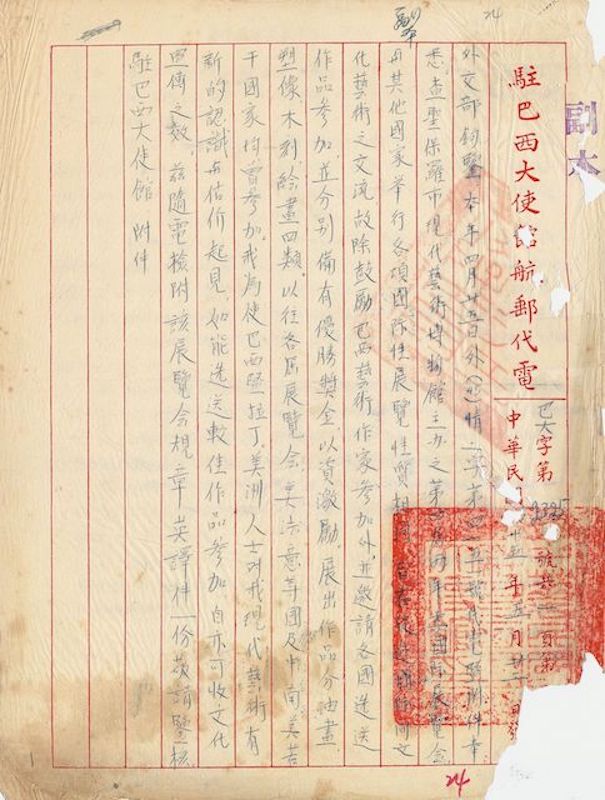 24
副本
駐巴西大使館航郵代電
巴大字第2325號共一頁第
中華民國 十五年五月廿 日發
外交部鈞鑒本年四月廿五日外(45)情 字第四 號代電暨附件奉
悉查聖保羅市現代藝術博物館主办之第四屆两年 国际展覽会
与其他國家举行各項國际性展覽性質相同旨在促進國际间文
化藝術之交流故除鼓励巴西藝術作家参加外並邀請各國选送
作品参加並分别備有優勝奬金以資激励展出作品分油畫
塑像木刻绘畫四類以往各屆展覽会美法意等國及中南美若
干國家均曾参加我為使巴西暨拉丁美洲人士对我現代藝術有
新的認識与估价起見如能选送較佳作品参加自亦可收文化
宣傳之效兹隨電檢附該展覽会規章英譯件一份敬請鑒核
駐巴西大使館 附件
24